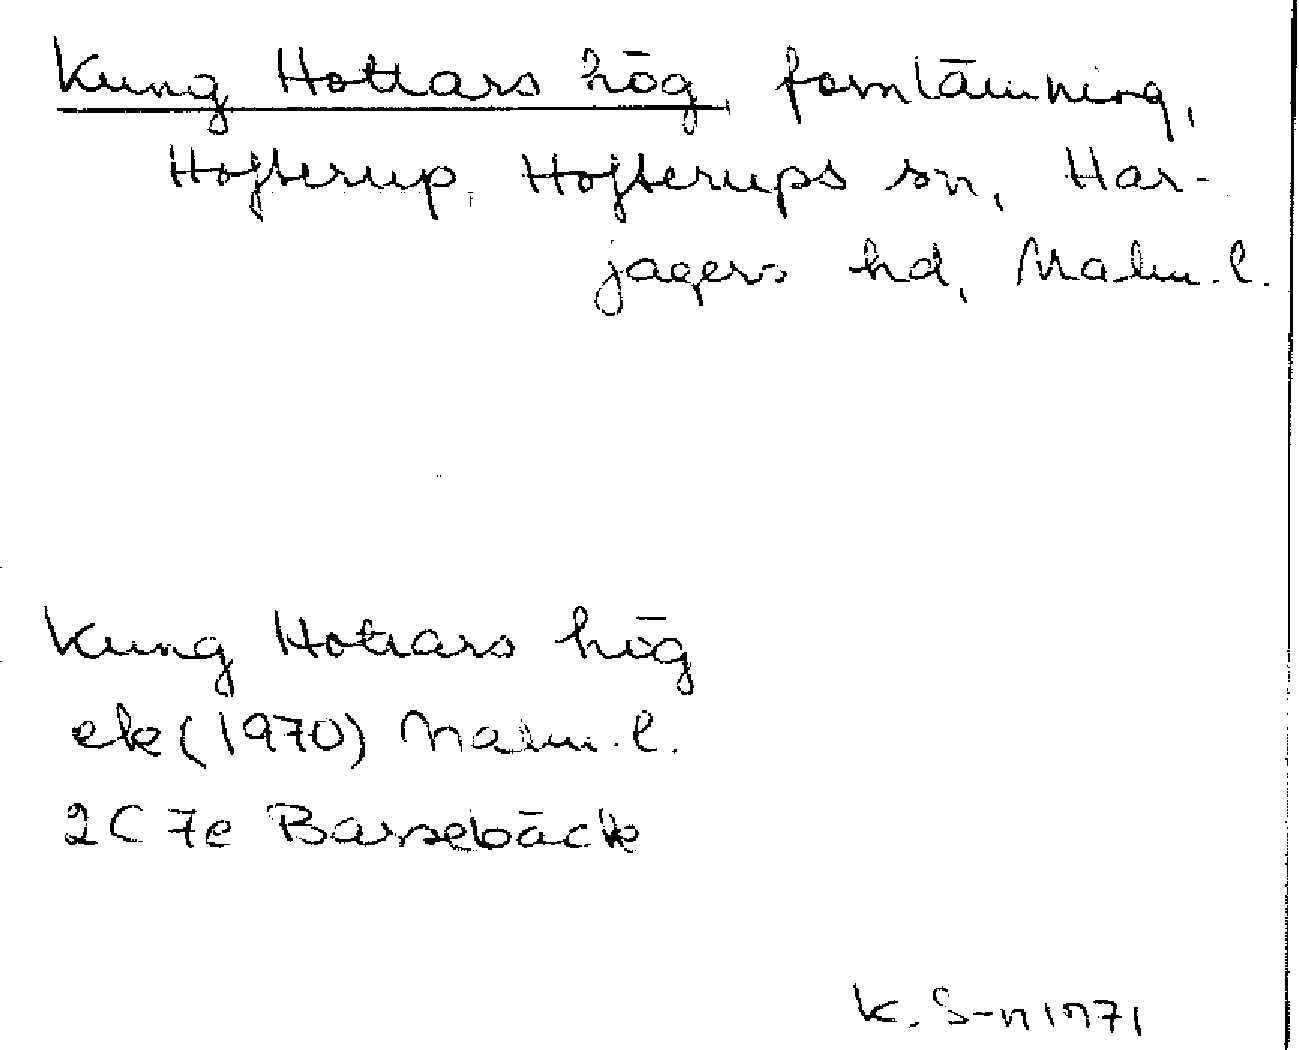 Kung Hottars hög fornlämning,
Hofterup, Hofterups sn, Har-
jagers hd, Malm. l.
Kung Hottars hög
ek (1970) Malm. l.
2C 7e Barsebäck
K. S-n 1971